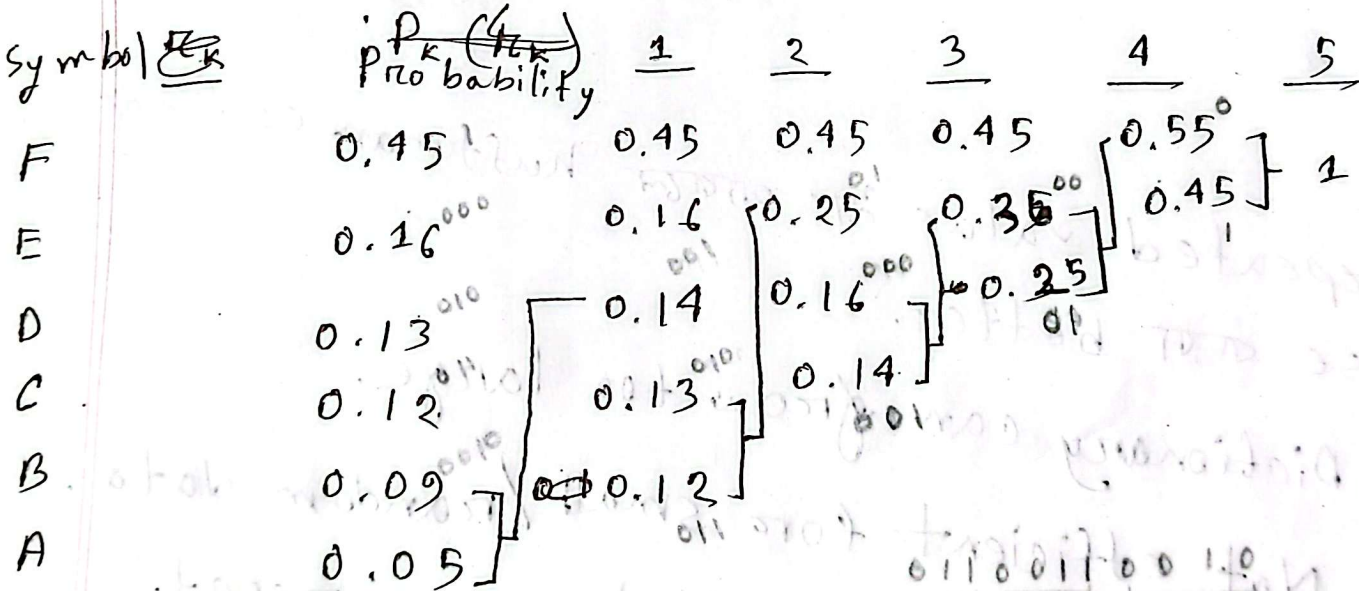 Symbol Probability 1 2 3 4 5
F 0.45 0.45 0.45 0.45 0.55 0 1
E 0.16 000 0.16 0.25 01 0.3 00 0.45 1
D 0.13 010 0.14 100 0.16 000 0.25 01
C 0.12 011 0.13 010 0.14 100
B 0.09 0010 0.12 011
A 0.05